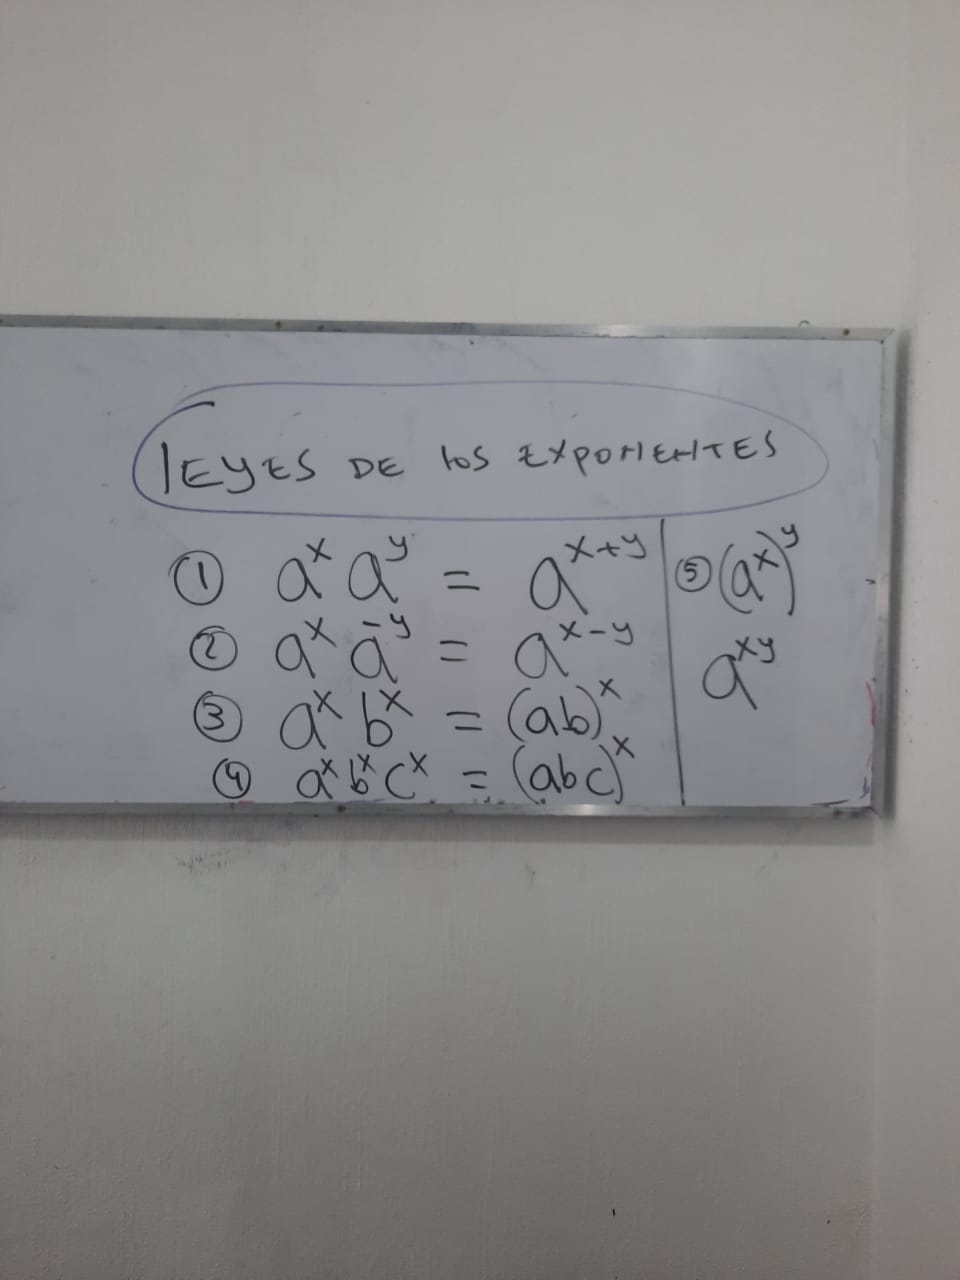 LEYES DE los EXPONENTES
① a^x a^y = a^{x+y}
② a^x a^{-y} = a^{x-y}
③ a^x b^x = (ab)^x
④ a^x b^x c^x = (abc)^x
⑤ (a^x)^y
a^{xy}